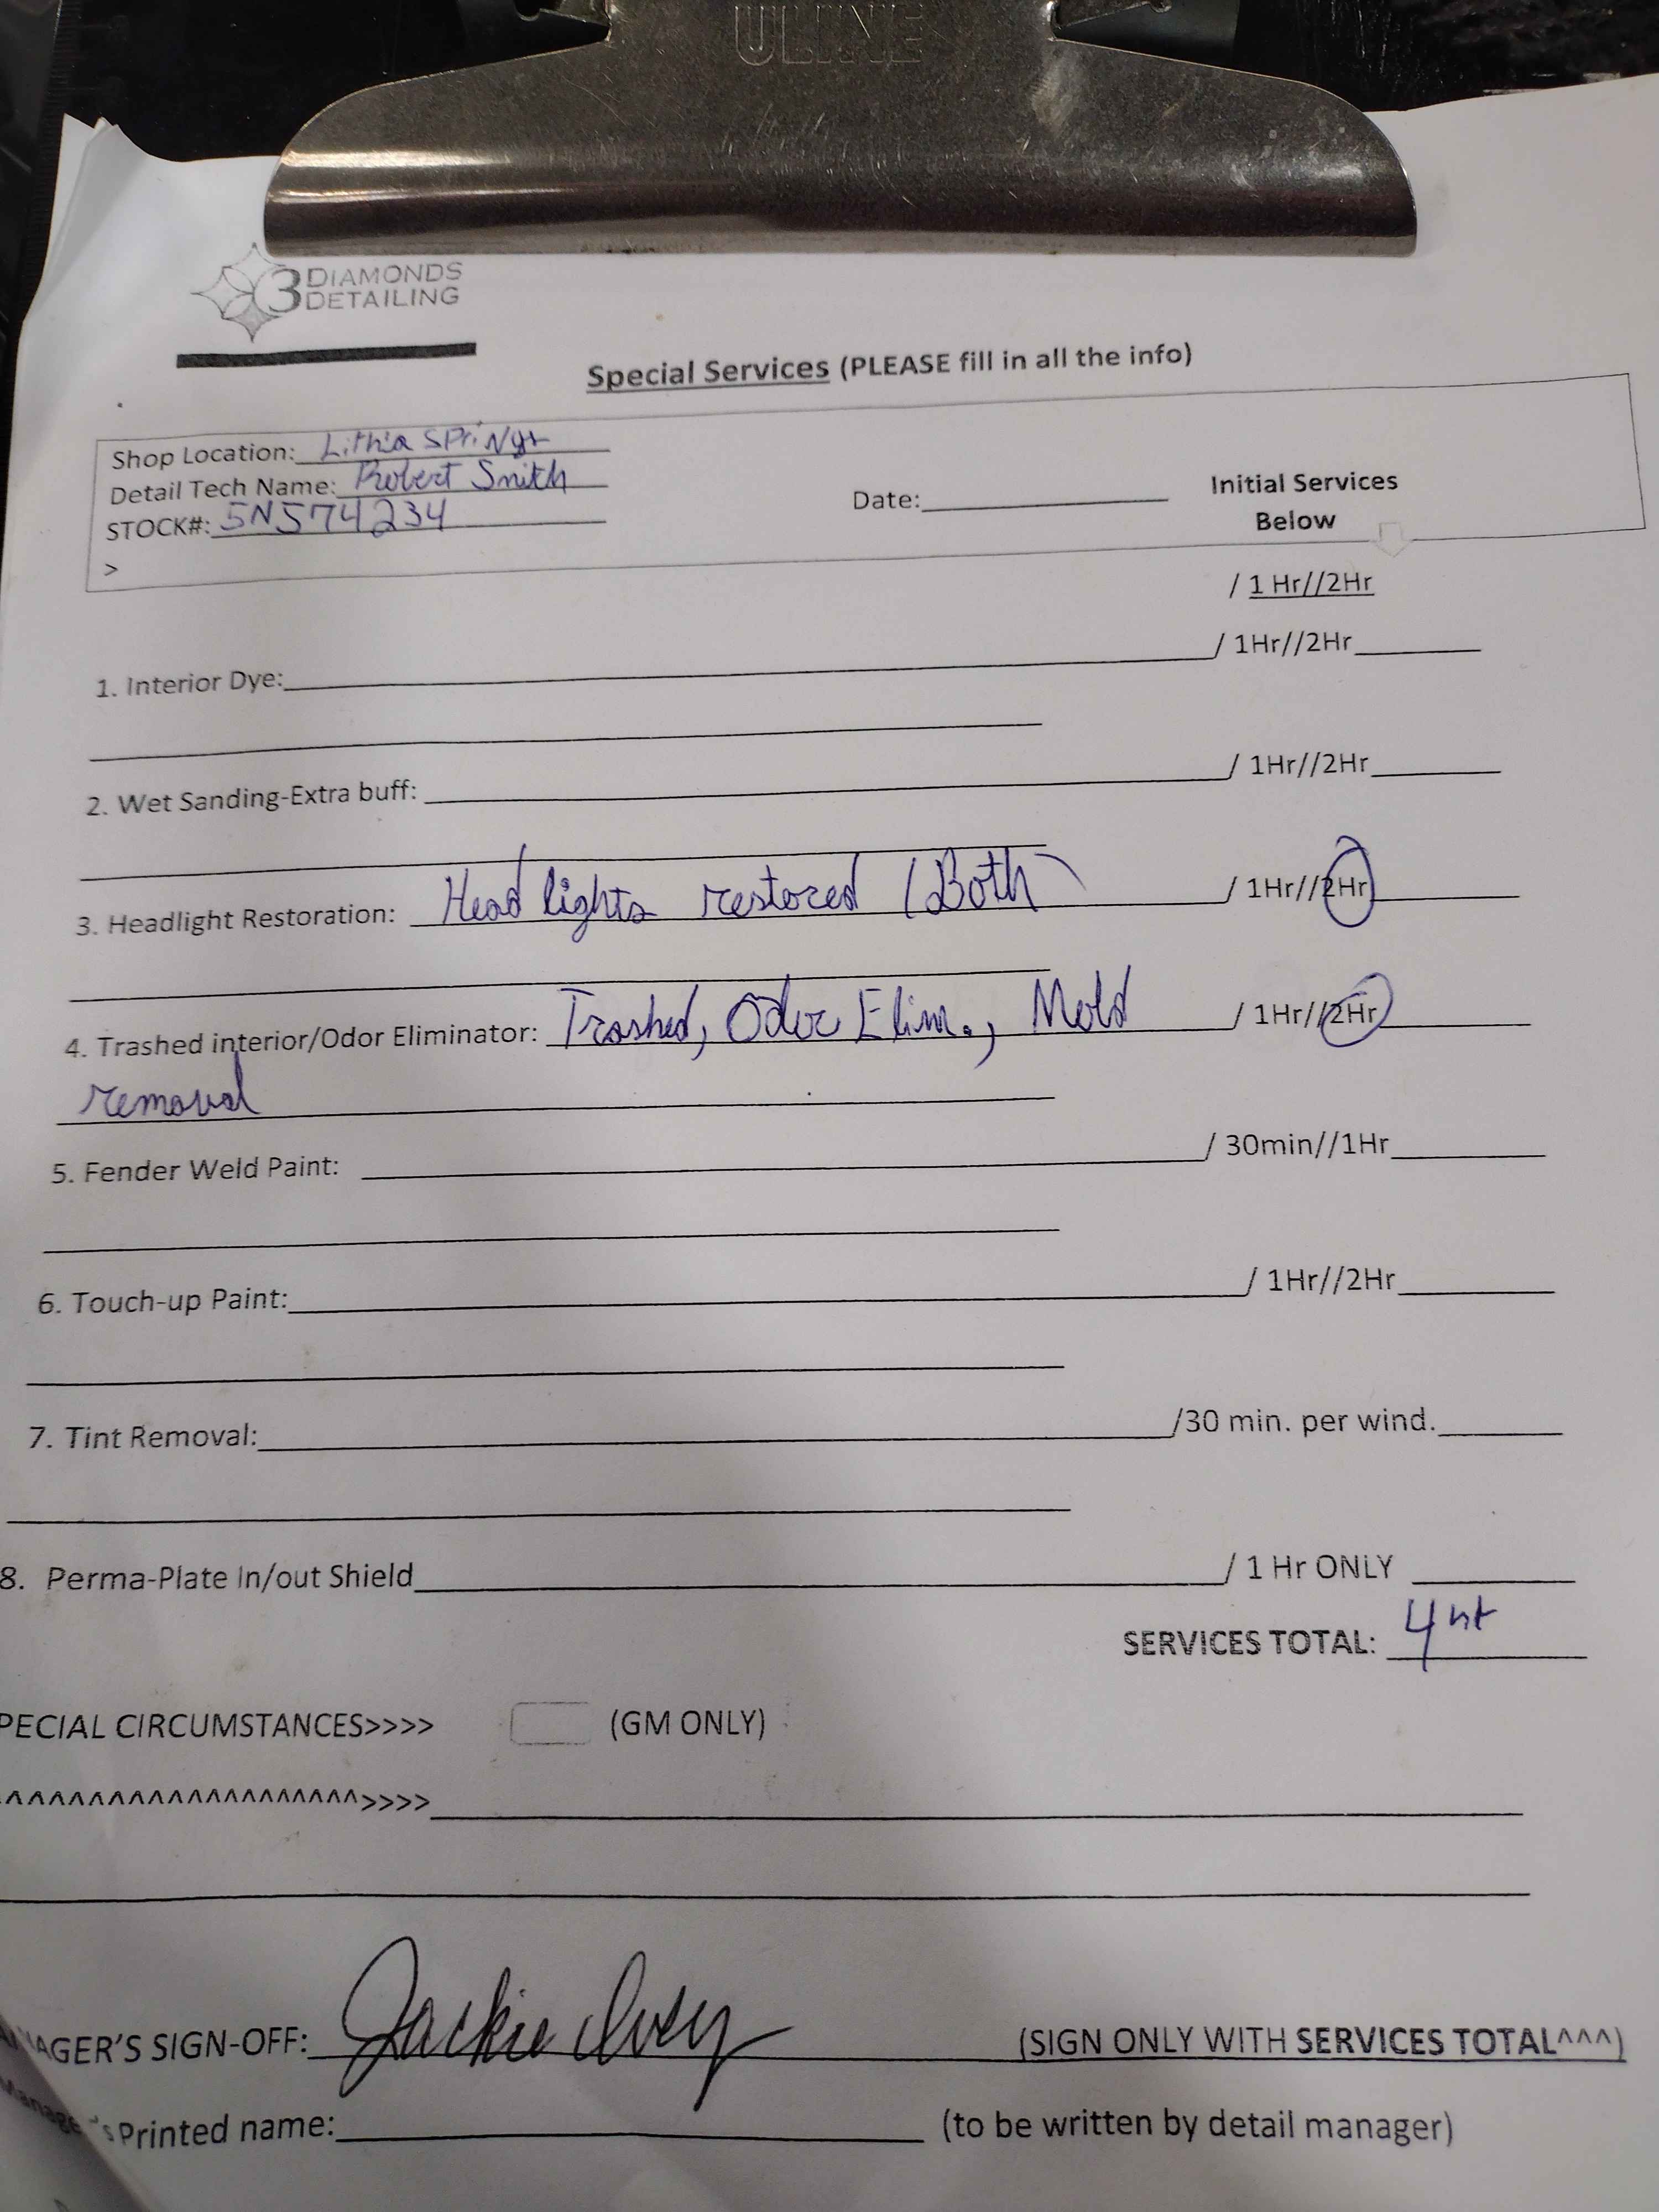 ULINE
3 DIAMONDS
DETAILING
Special Services (PLEASE fill in all the info)
Shop Location: Lithia Springs
Detail Tech Name: Robert Smith
STOCK#: 5N574234
Date:
Initial Services
Below
>
/ 1 Hr//2Hr
1. Interior Dye: / 1Hr//2Hr
2. Wet Sanding-Extra buff: / 1Hr//2Hr
3. Headlight Restoration: Head lights restored (Both) / 1Hr//2Hr
4. Trashed interior/Odor Eliminator: Trashed, Odor Elim., Mold / 1Hr//2Hr
removal
5. Fender Weld Paint: / 30min//1Hr
6. Touch-up Paint: / 1Hr//2Hr
7. Tint Removal: /30 min. per wind.
8. Perma-Plate In/out Shield / 1 Hr ONLY
SERVICES TOTAL: 4
PECIAL CIRCUMSTANCES>>>> (GM ONLY)
^^^^^^^^^^^^^^^^^^^^>>>>
AGER'S SIGN-OFF: Jackie Ivey (SIGN ONLY WITH SERVICES TOTAL^^^)
Manage 's Printed name: (to be written by detail manager)